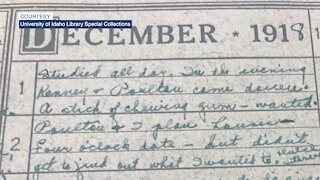 COURTESY
University of Idaho Library Special Collections
DECEMBER ★ 1918
1
Studied all day. In the evening
Kenney & Poulton came down.
A stick of chewing gum – wanted.
2
Poulton & I plan
Four o'clock date – but didn't
get to find out what I wanted to